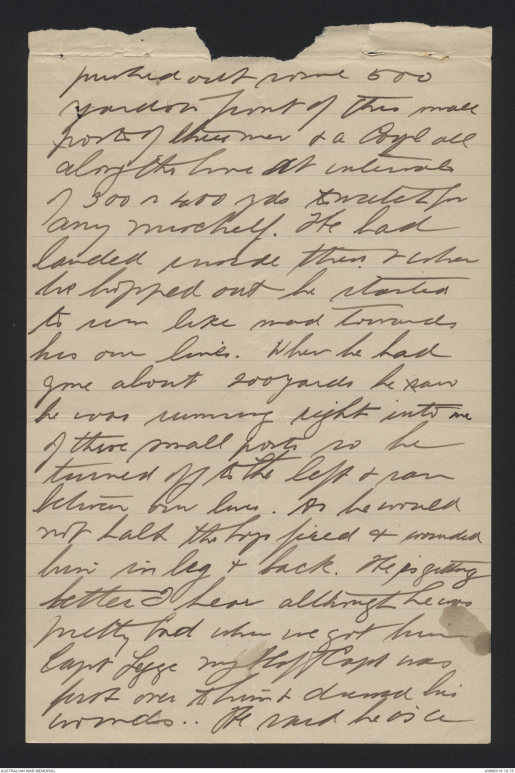 pushed out some 500
yards in front of this small
posts of three men & a Corpl all
along the line at intervals
of 300 or 400 yds to watch for
any mischief. He had
landed inside these & when
he hopped out he started
to run like mad towards
his own lines. When he had
gone about 200 yards he saw
he was running right into one
of these small posts so he
turned off to the left & ran
between our lines. As he would
not halt the boys fired & wounded
him in leg & back. He is getting
better I hear although he was
pretty bad when we got him
Capt Legge my Staff Capt was
first over to him & dressed his
wounds.. He said he is a
AUSTRALIAN WAR MEMORIAL